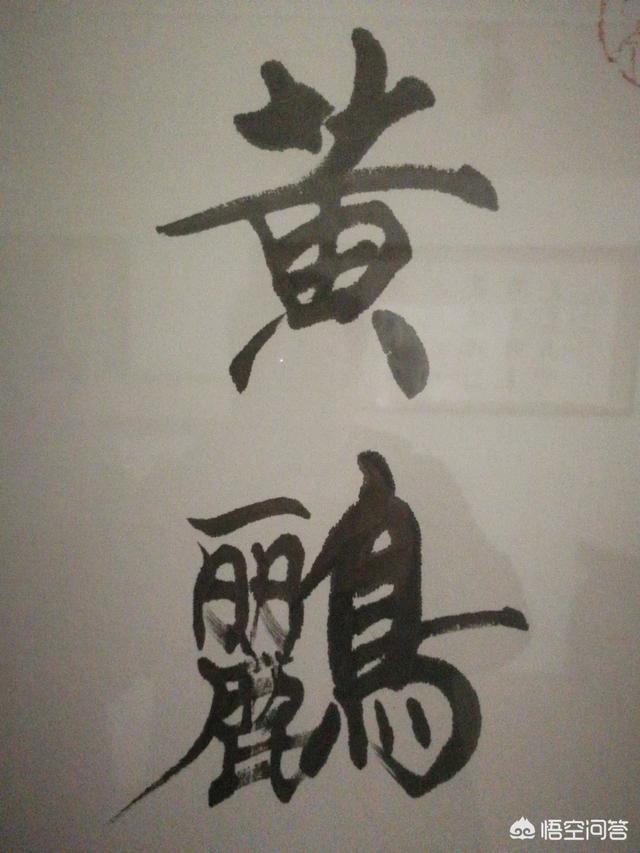 黄
鸝
悟空问答